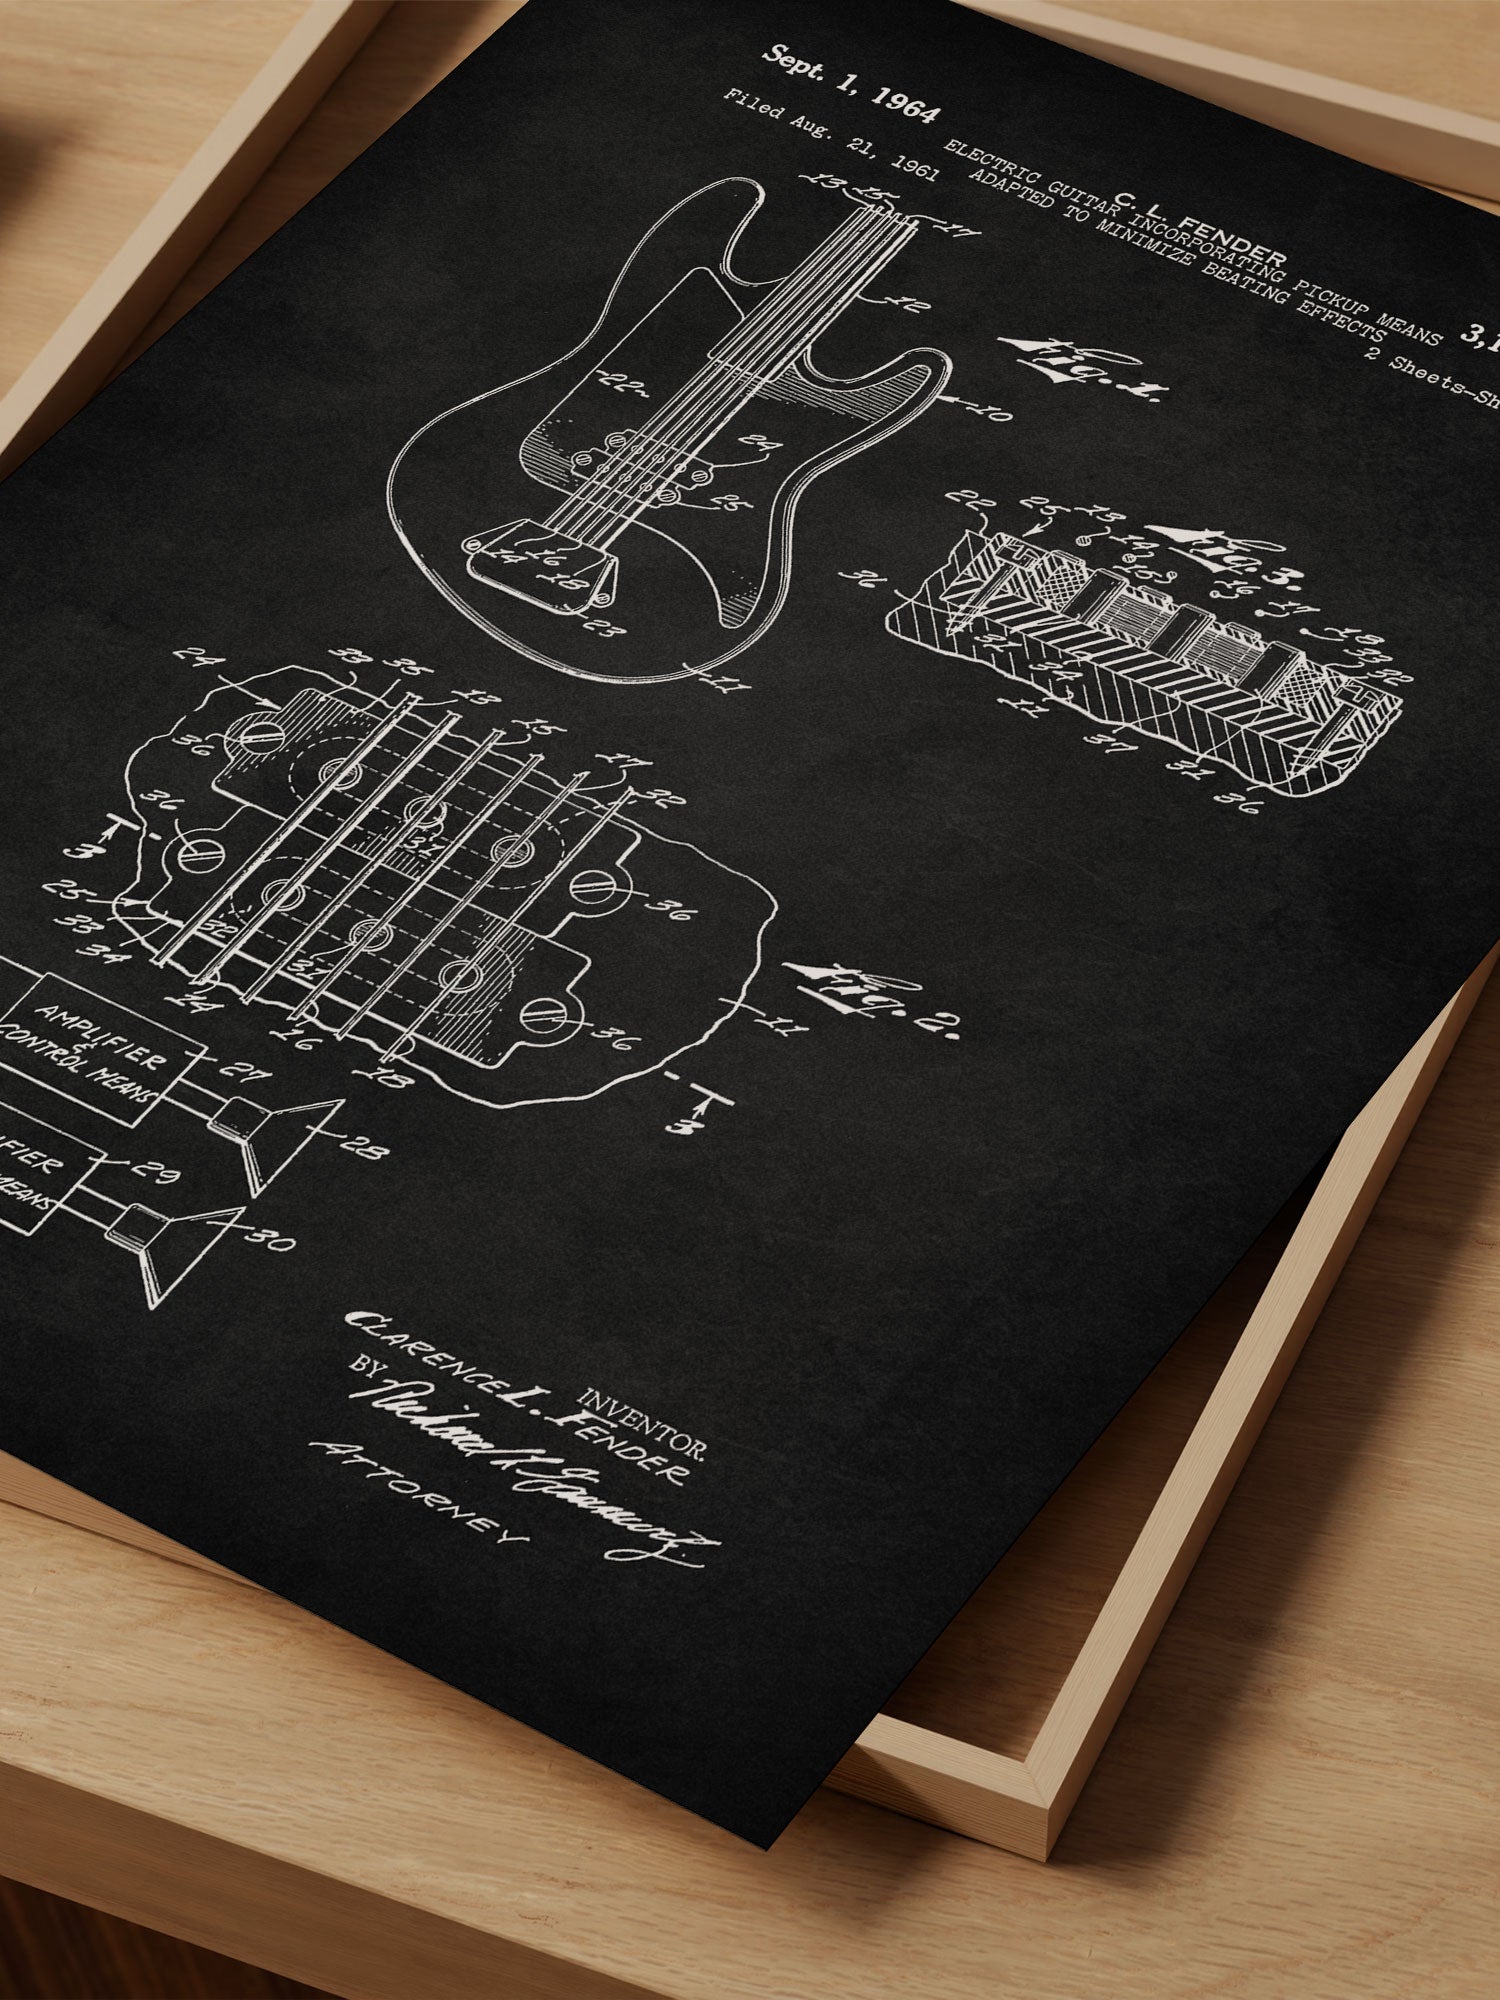 Sept. 1, 1964
C. L. FENDER
ELECTRIC GUITAR INCORPORATING PICKUP MEANS
ADAPTED TO MINIMIZE BEATING EFFECTS
Filed Aug. 21, 1961
2 Sheets-Sh
13 15
17
12
Fig. 1.
10
22
24
25
16
14 18
23
11
22 25 13
14
15
Fig. 3.
16 17
18
33
32
36
31 34
11
37
31
36
24 33 35 13
15
17
32
36
36
3
37
36
25
33
34
32
31
14
16
18
36
11
Fig. 2.
3
AMPLIFIER
&
CONTROL MEANS
27
28
IFIER
MEANS
29
30
INVENTOR.
CLARENCE L. FENDER
BY
ATTORNEY